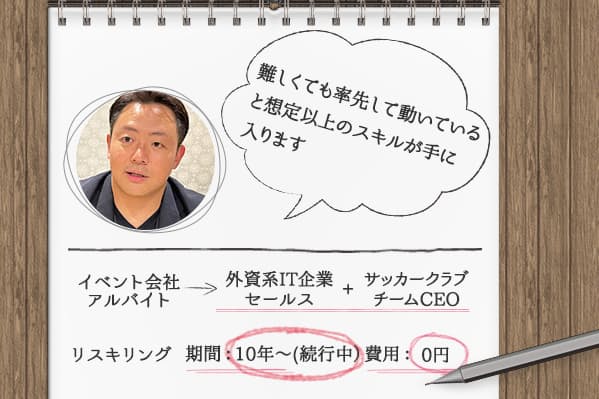 難しくても率先して動いている
と想定以上のスキルが手に
入ります
イベント会社
アルバイト
外資系IT企業
セールス
+
サッカークラブ
チームCEO
リスキリング 期間：10年～(続行中) 費用：0円